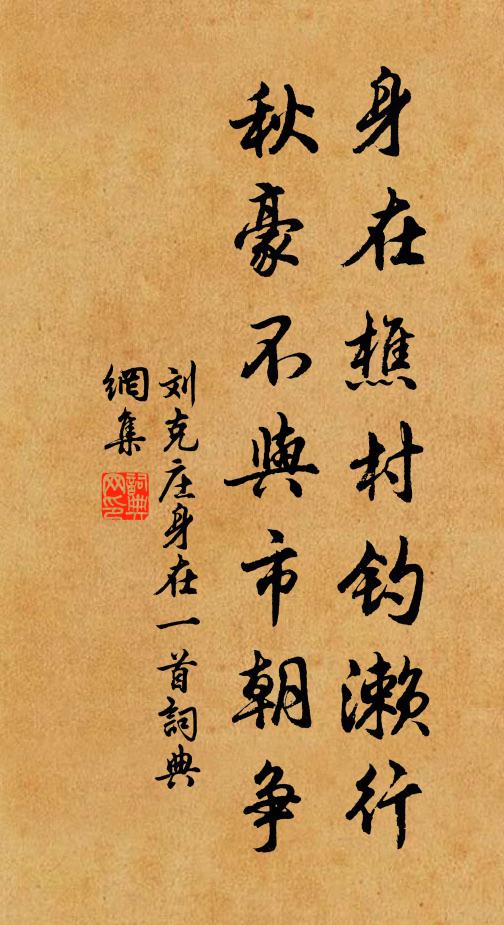 身在樵村钓濑行
秋豪不與市朝争
刘克庄身在一首詞典
網集
詞典
网印